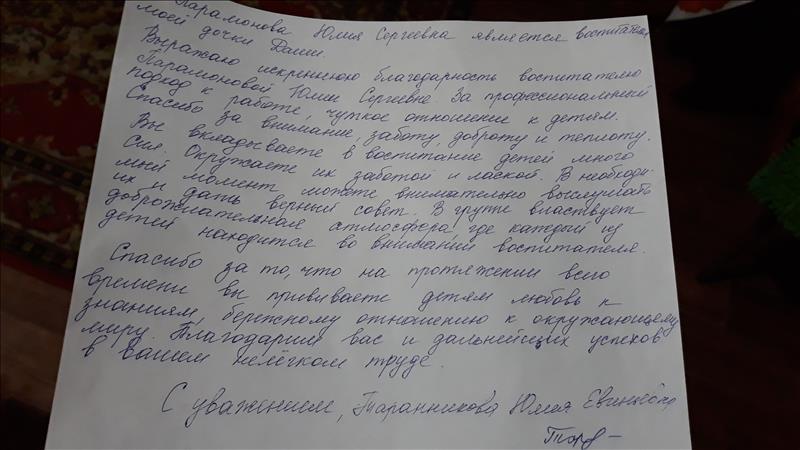 Парамонова Юлия Сергеевна является воспитателем
моей дочки Даши.
Выражаю искреннюю благодарность воспитателю
Парамоновой Юлии Сергеевне. За профессиональный
подход к работе, чуткое отношение к детям.
Спасибо за внимание, заботу, доброту и теплоту.
Вы вкладываете в воспитание детей много
сил. Окружаете их заботой и лаской. В необходи-
мый момент можете внимательно выслушать
их и дать верный совет. В группе властвует
доброжелательная атмосфера, где каждый из
детей находится во внимании воспитателя.
Спасибо за то, что на протяжении всего
времени вы прививаете детям любовь к
знаниям, бережному отношению к окружающему
миру. Благодарим вас и дальнейших успехов
в вашем нелёгком труде.
С уважением, Таранникова Юлия